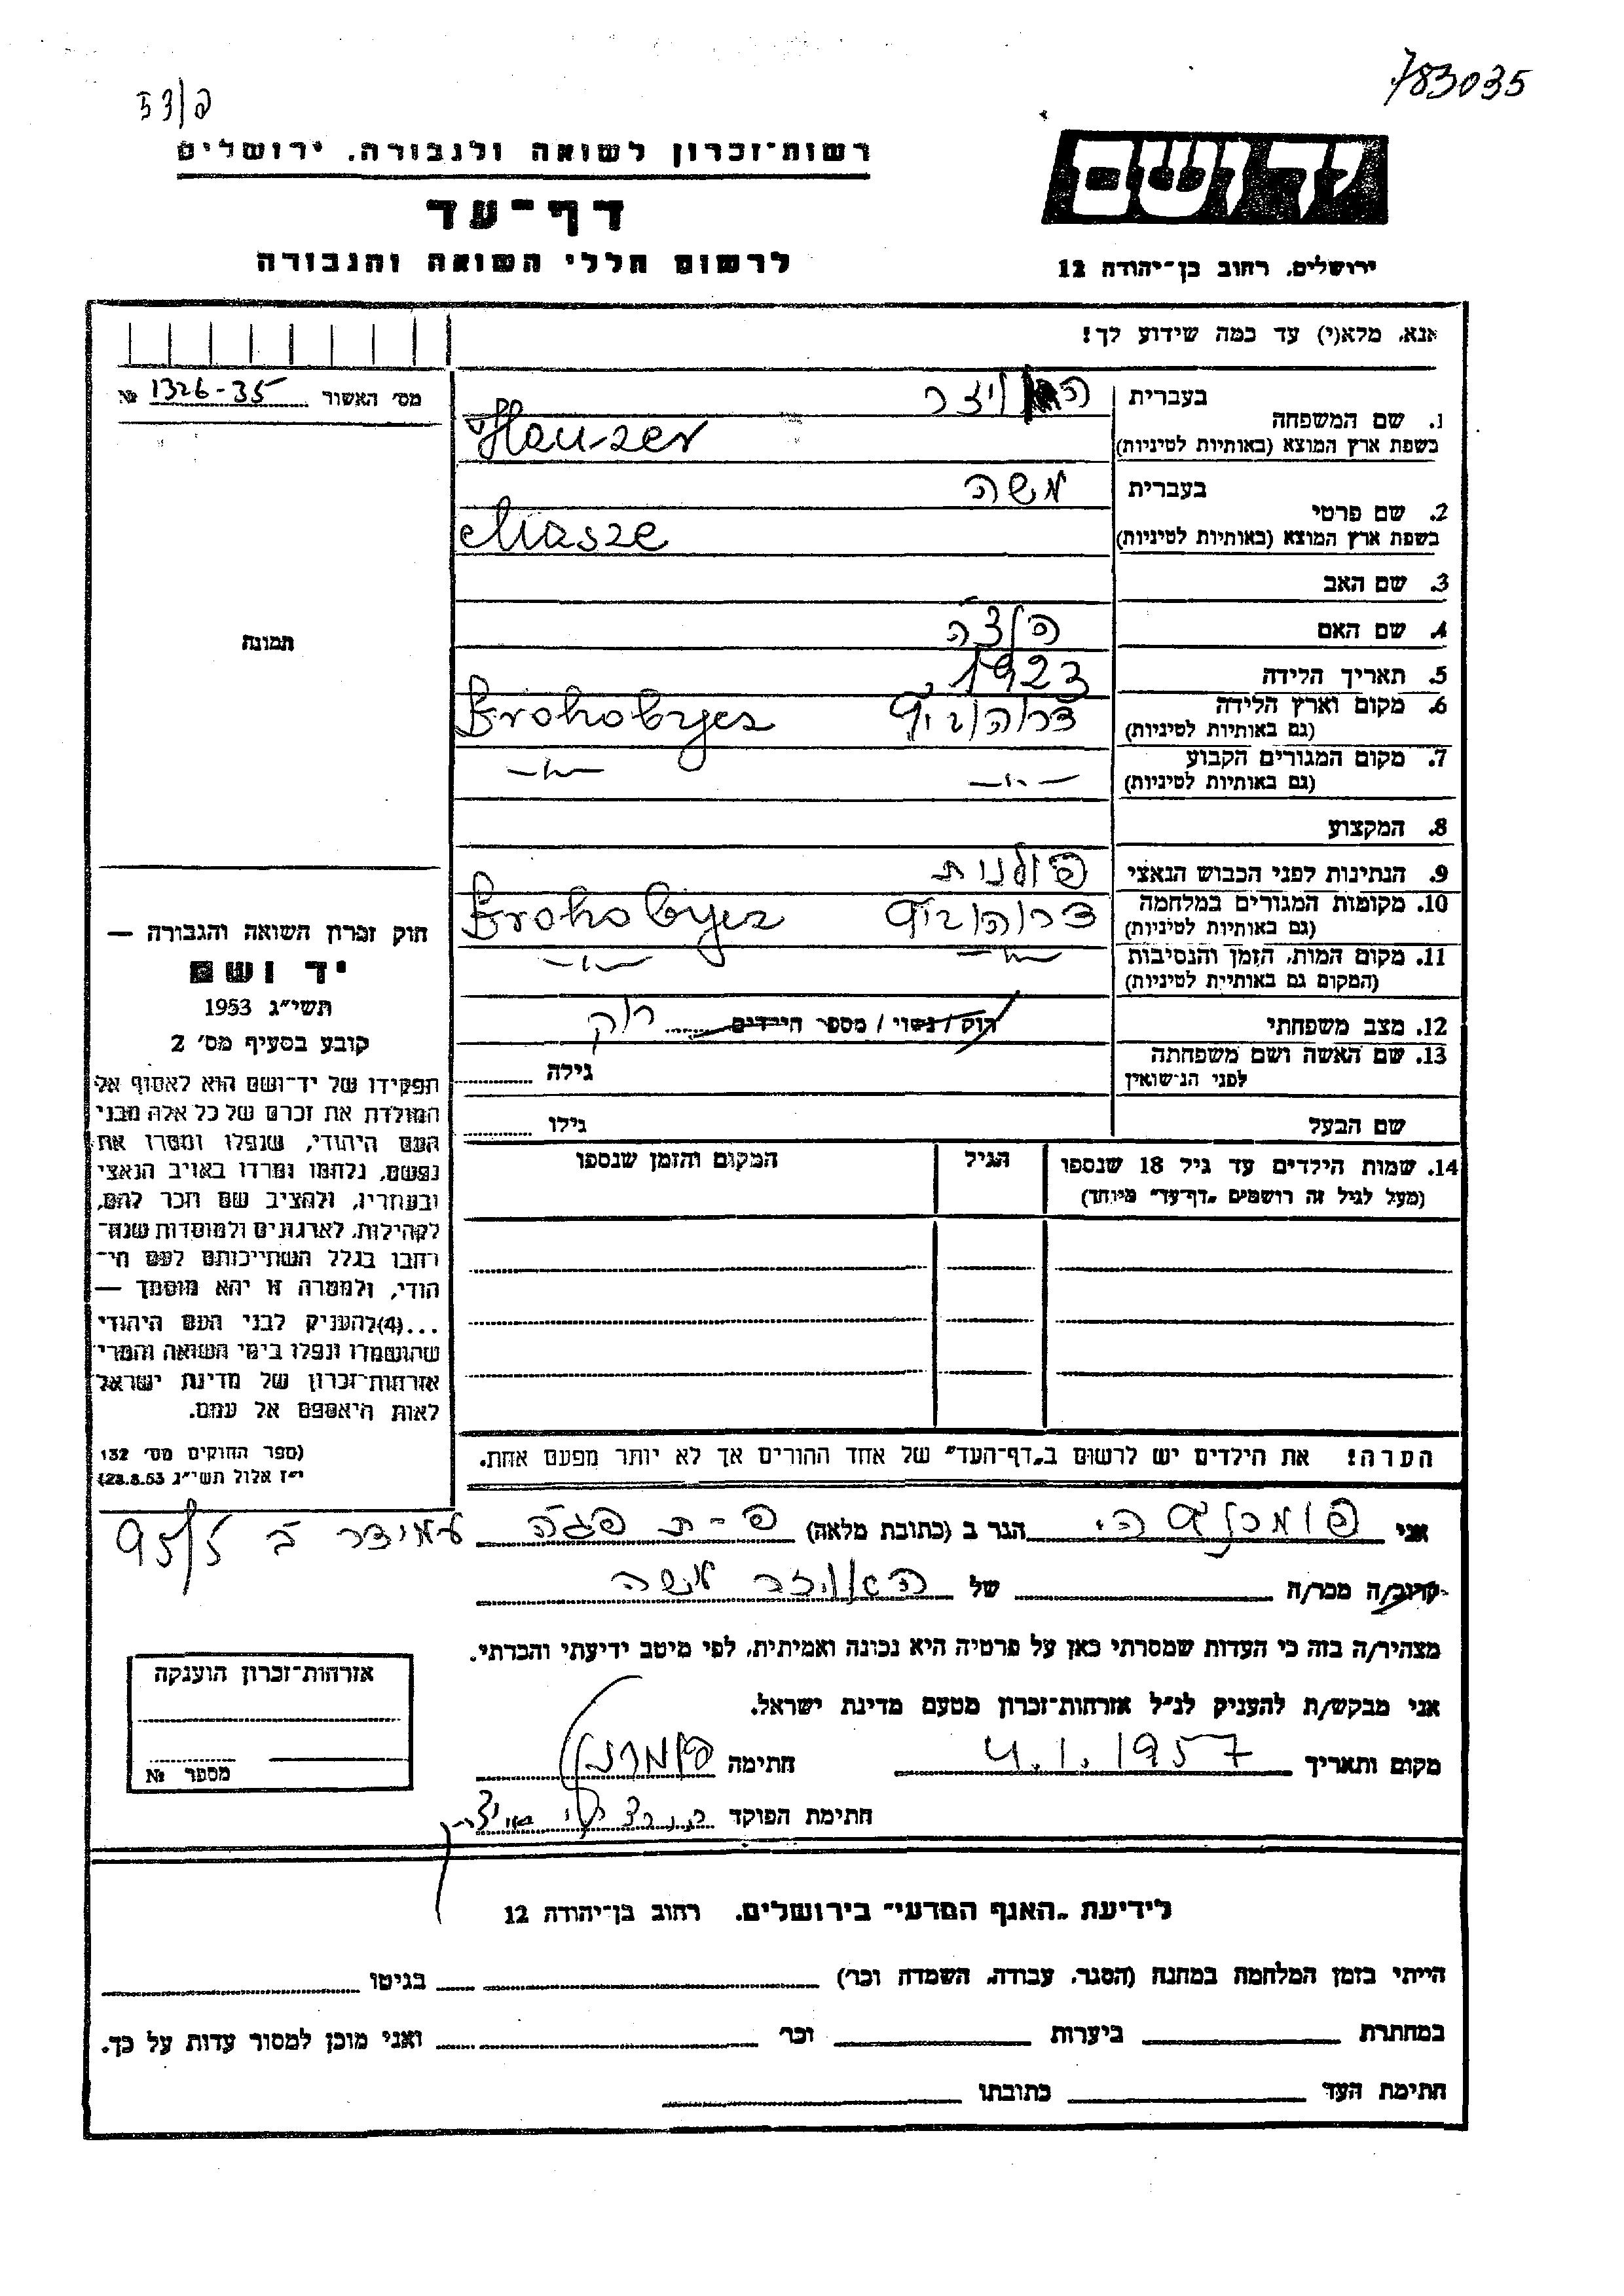 783035
53/פ
רשות־זכרון לשואה ולגבורה, ירושלים
דף־עד
לרשום חללי השואה והגבורה
יד ושם
ירושלים, רחוב בן־יהודה 12
אנא, מלא(י) עד כמה שידוע לך!
מס׳ האשור 1326-35 №
תמונה
1. שם המשפחה
בעברית
בשפת ארץ המוצא (באותיות לטיניות) Hauzer
2. שם פרטי
בעברית משה
בשפת ארץ המוצא (באותיות לטיניות)
3. שם האב
4. שם האם
5. תאריך הלידה 1923
6. מקום וארץ הלידה
(גם באותיות לטיניות)
7. מקום המגורים הקבוע —"— —"—
(גם באותיות לטיניות)
8. המקצוע
9. הנתינות לפני הכבוש הנאצי פולנית
10. מקומות המגורים במלחמה
(גם באותיות לטיניות)
11. מקום המות, הזמן והנסיבות —"— —"—
(המקום גם באותיות לטיניות)
12. מצב משפחתי רווק/נשוי/מספר הילדים רוק
13. שם האשה ושם משפחתה
לפני הנישואין
גילה
שם הבעל
גילו
14. שמות הילדים עד גיל 18 שנספו
(מעל לגיל זה רושמים „דף־עד״ מיוחד)
הגיל
המקום והזמן שנספו
חוק זכרון השואה והגבורה —
יד ושם
תשי״ג 1953
קובע בסעיף מס׳ 2
תפקידו של יד־ושם הוא לאסוף אל
המולדת את זכרם של כל אלה מבני
העם היהודי, שנפלו ומסרו את
נפשם, נלחמו ומרדו באויב הנאצי
ובעוזריו, ולהציב שם וזכר להם,
לקהילות, לארגונים ולמוסדות שנח־
רבו בגלל השתייכותם לעם הי־
הודי, ולמטרה זו יהא מוסמך —
...(4)להעניק לבני העם היהודי
שהושמדו ונפלו בימי השואה והמרי
אזרחות־זכרון של מדינת ישראל
לאות היאספם אל עמם.
(ספר החוקים מס׳ 132
י״ז אלול תשי״ג 28.8.53)
הערה! את הילדים יש לרשום ב„דף־העד״ של אחד ההורים אך לא יותר מפעם אחת.
אני הגר ב (כתובת מלאה) פ-ת עמידר ב 95/5
קרוב/ה מכר/ה של האוזר משה
מצהיר/ה בזה כי העדות שמסרתי כאן על פרטיה היא נכונה ואמיתית, לפי מיטב ידיעתי והכרתי.
אני מבקש/ת להעניק לנ״ל אזרחות־זכרון מטעם מדינת ישראל.
מקום ותאריך 4.1.1957 חתימה
חתימת הפוקד
אזרחות־זכרון הוענקה
מספר №
לידיעת „האגף המדעי״ בירושלים. רחוב בן־יהודה 12
הייתי בזמן המלחמה במחנה (הסגר, עבודה, השמדה וכו׳) בגיטו
במחתרת ביערות וכו׳ ואני מוכן למסור עדות על כך.
חתימת העד כתובתו